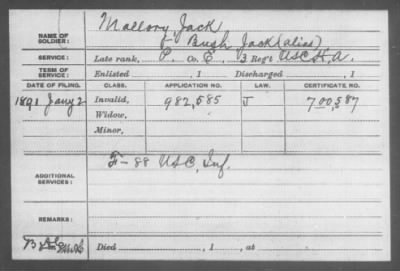 NAME OF SOLDIER: Mallory Jack
Bush Jack (alias)
SERVICE: Late rank, P. Co. E, 3 Reg't USC H.A.
TERM OF SERVICE: Enlisted , 1 Discharged , 1
DATE OF FILING. CLASS. APPLICATION NO. LAW. CERTIFICATE NO.
1891 Jany 2 Invalid, 982,585 J 700,587
Widow,
Minor,
ADDITIONAL SERVICES: F-88 USC, Inf.
REMARKS:
Died , 1 , at